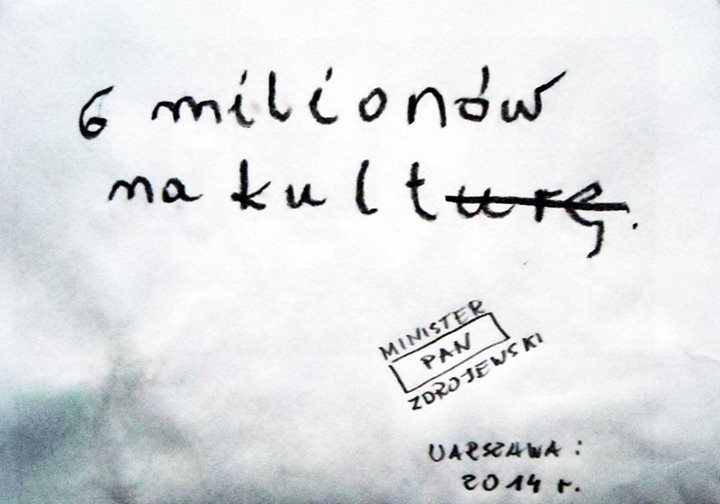 6 milionów
na kulturę.
MINISTER
PAN
ZDROJEWSKI
WARSZAWA:
2014 r.